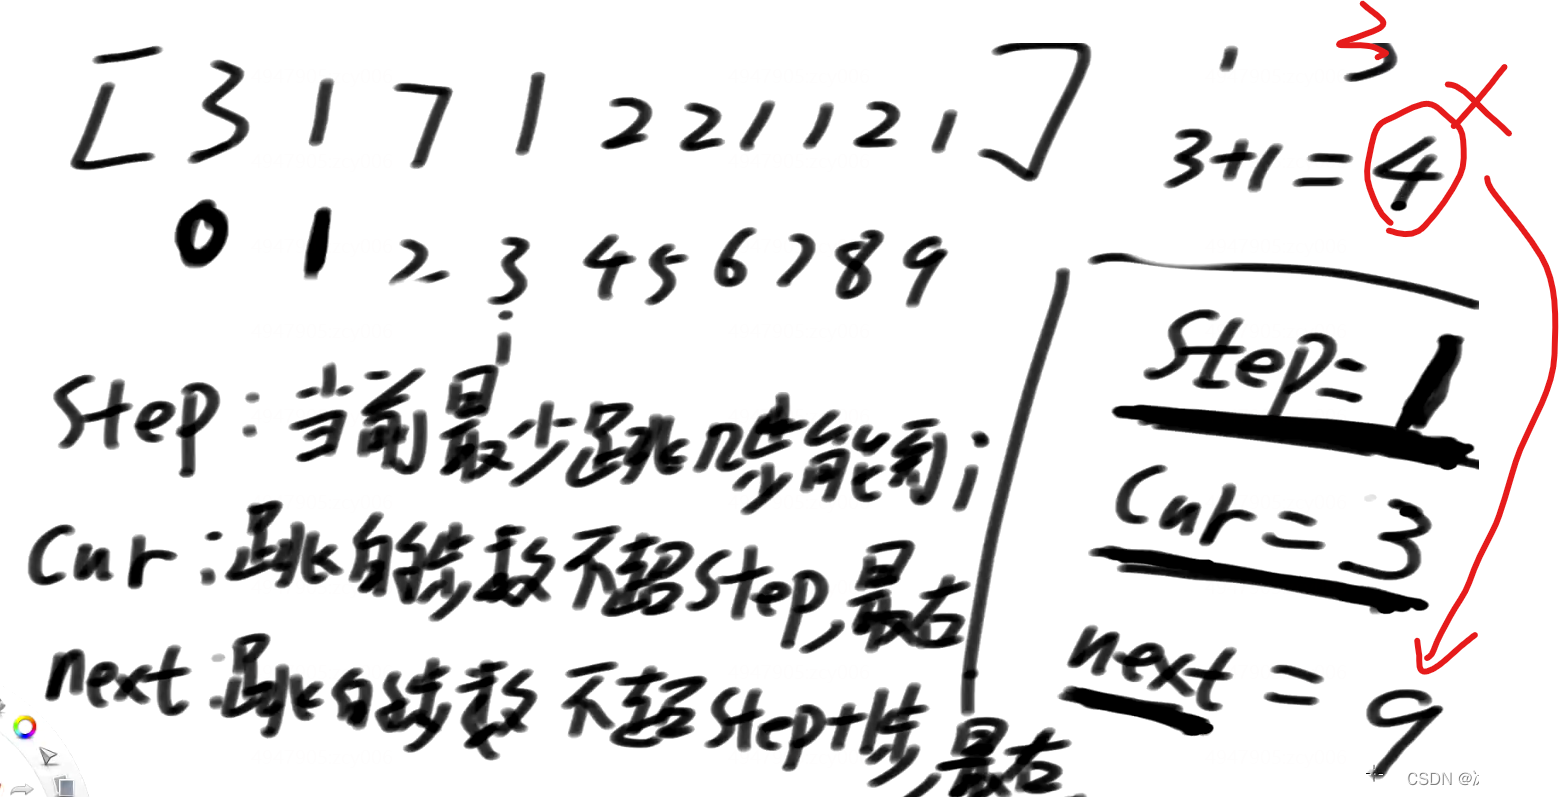 [3 1 7 1 2 2 1 1 2 1]
i 3
3
3+1=4
0 1 2 3 4 5 6 7 8 9
i
Step:当前最少跳几步能到i
Cur:跳的步数不超Step,最右
next:跳的步数不超Step+1步,最右
Step=1
Cur=3
next=9
CSDN @